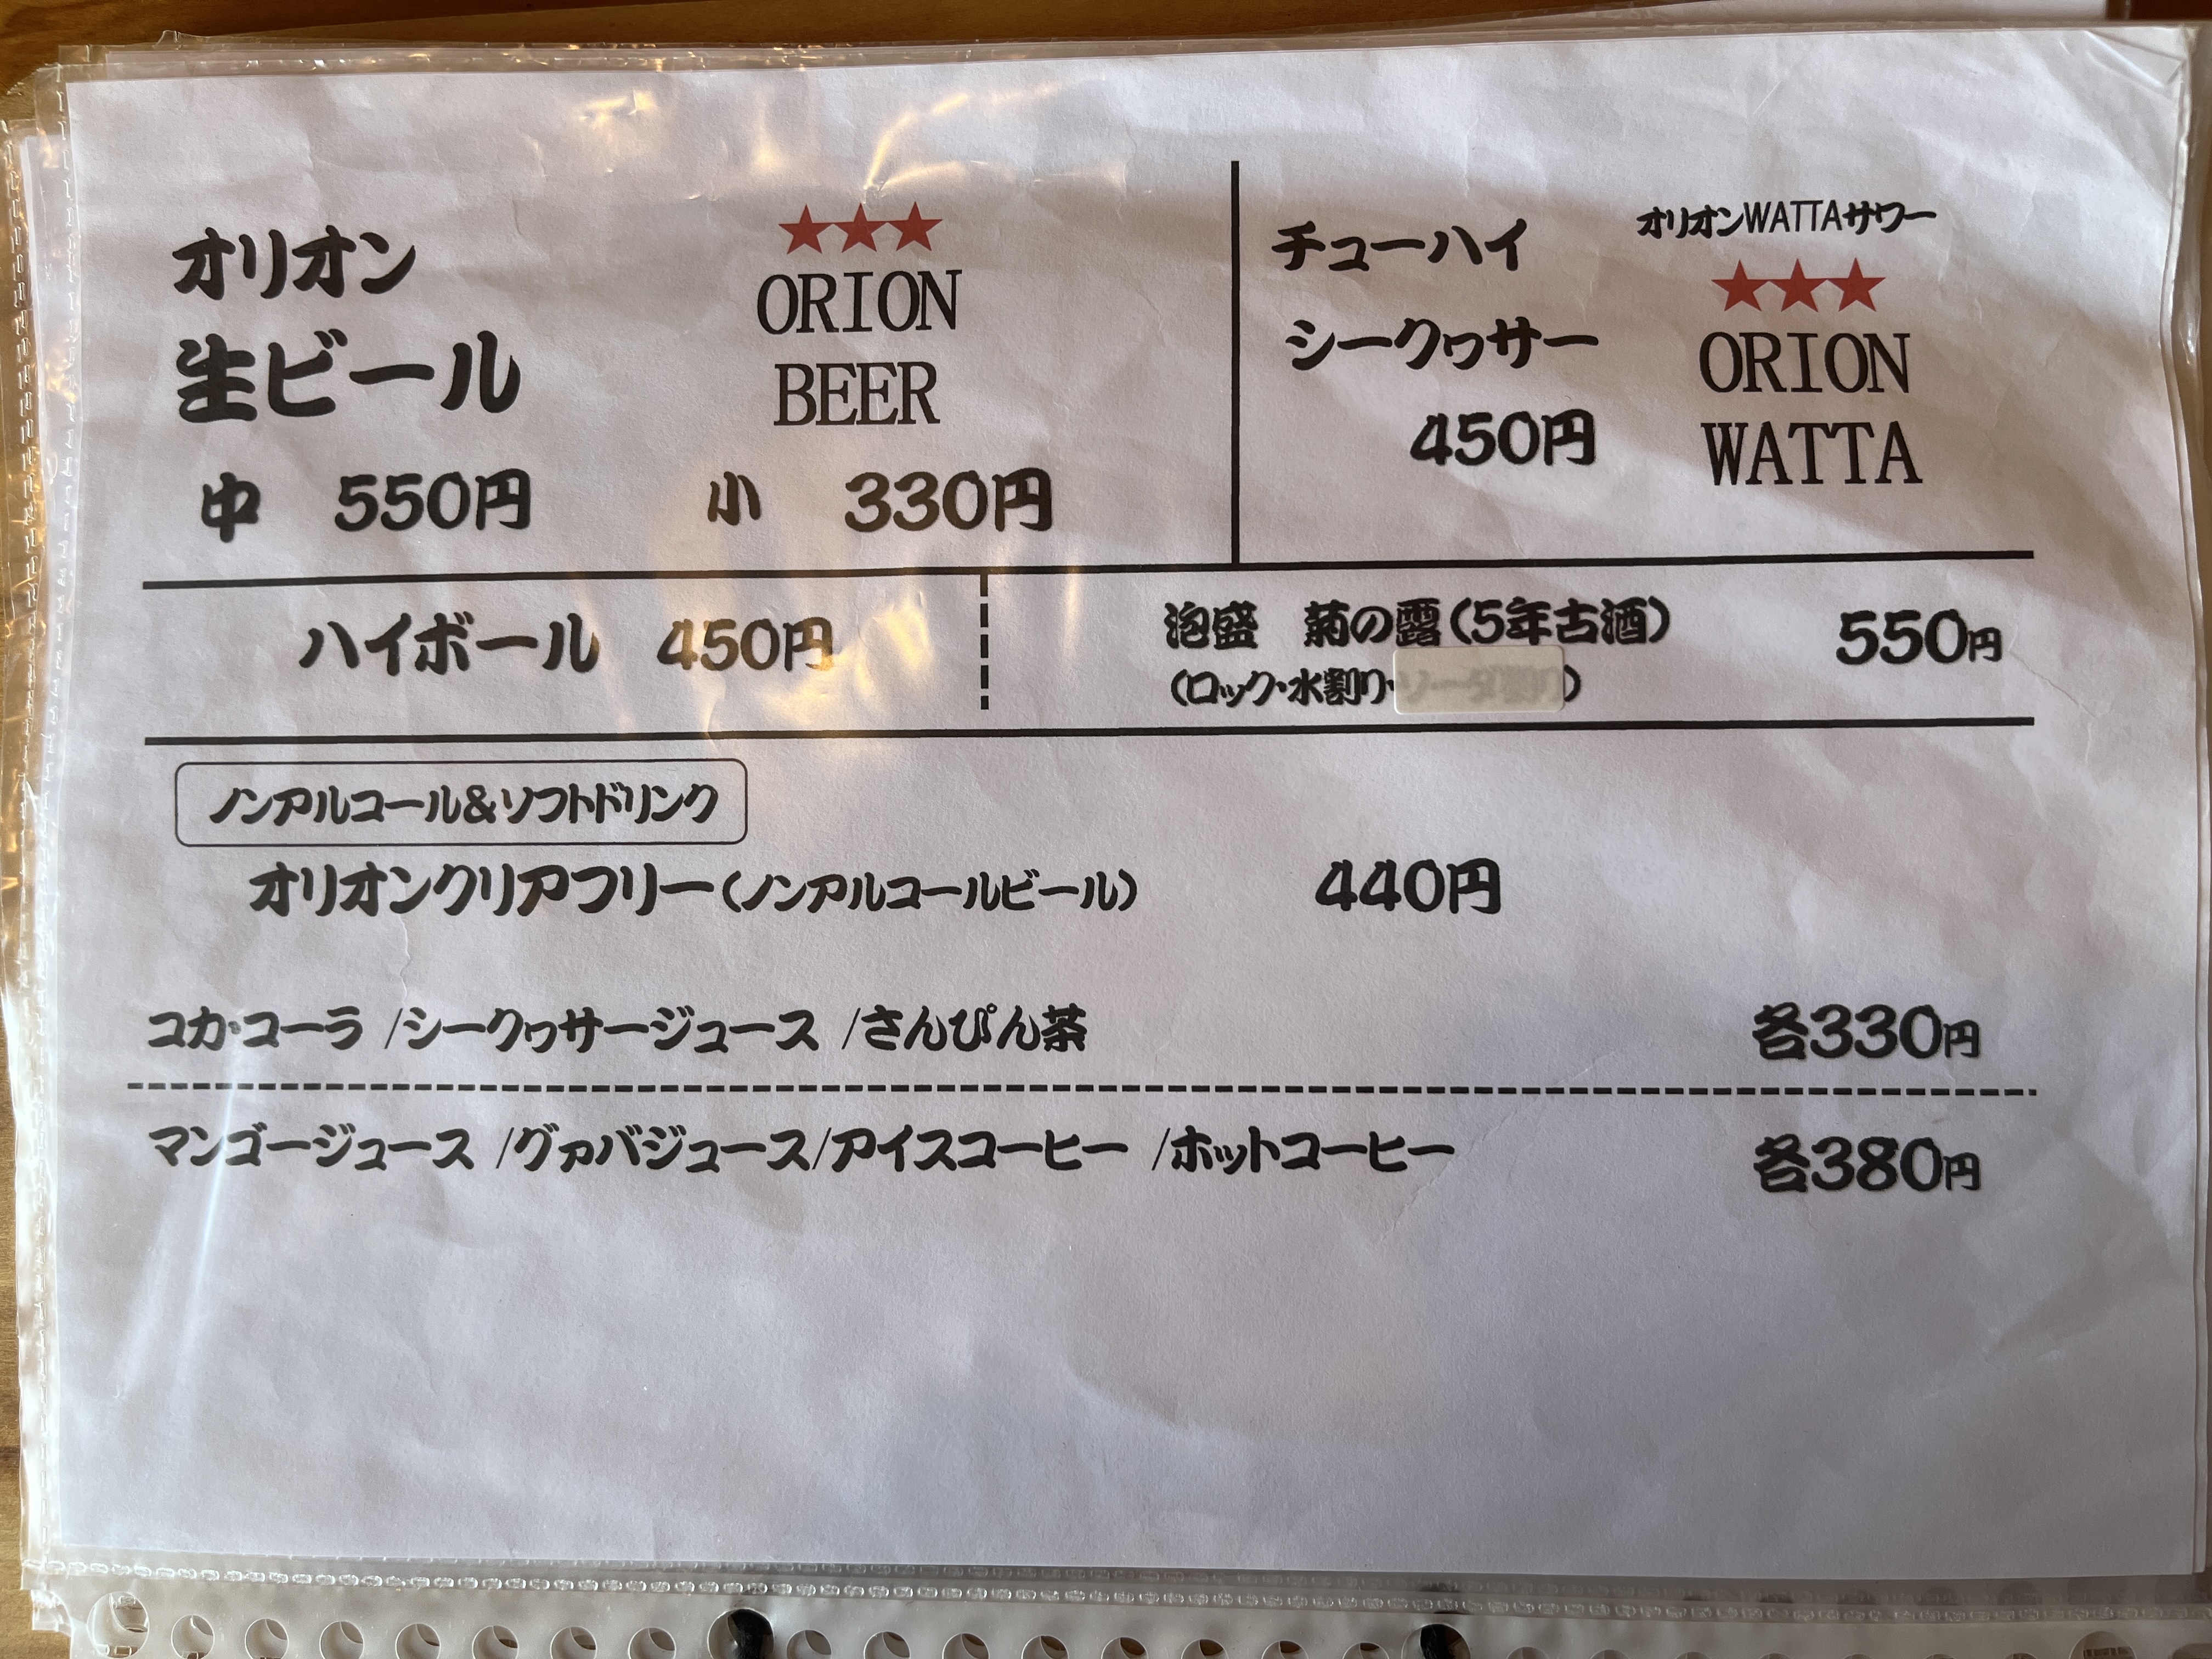 オリオン
生ビール
★★★
ORION
BEER
中 550円 小 330円
チューハイ
シークヮサー
450円
オリオンWATTAサワー
★★★
ORION
WATTA
ハイボール 450円
泡盛 菊の露(5年古酒) 550円
(ロック・水割り・ソーダ割り)
ノンアルコール&ソフトドリンク
オリオンクリアフリー(ノンアルコールビール) 440円
コカ・コーラ /シークヮサージュース /さんぴん茶 各330円
マンゴージュース /グァバジュース/アイスコーヒー /ホットコーヒー 各380円